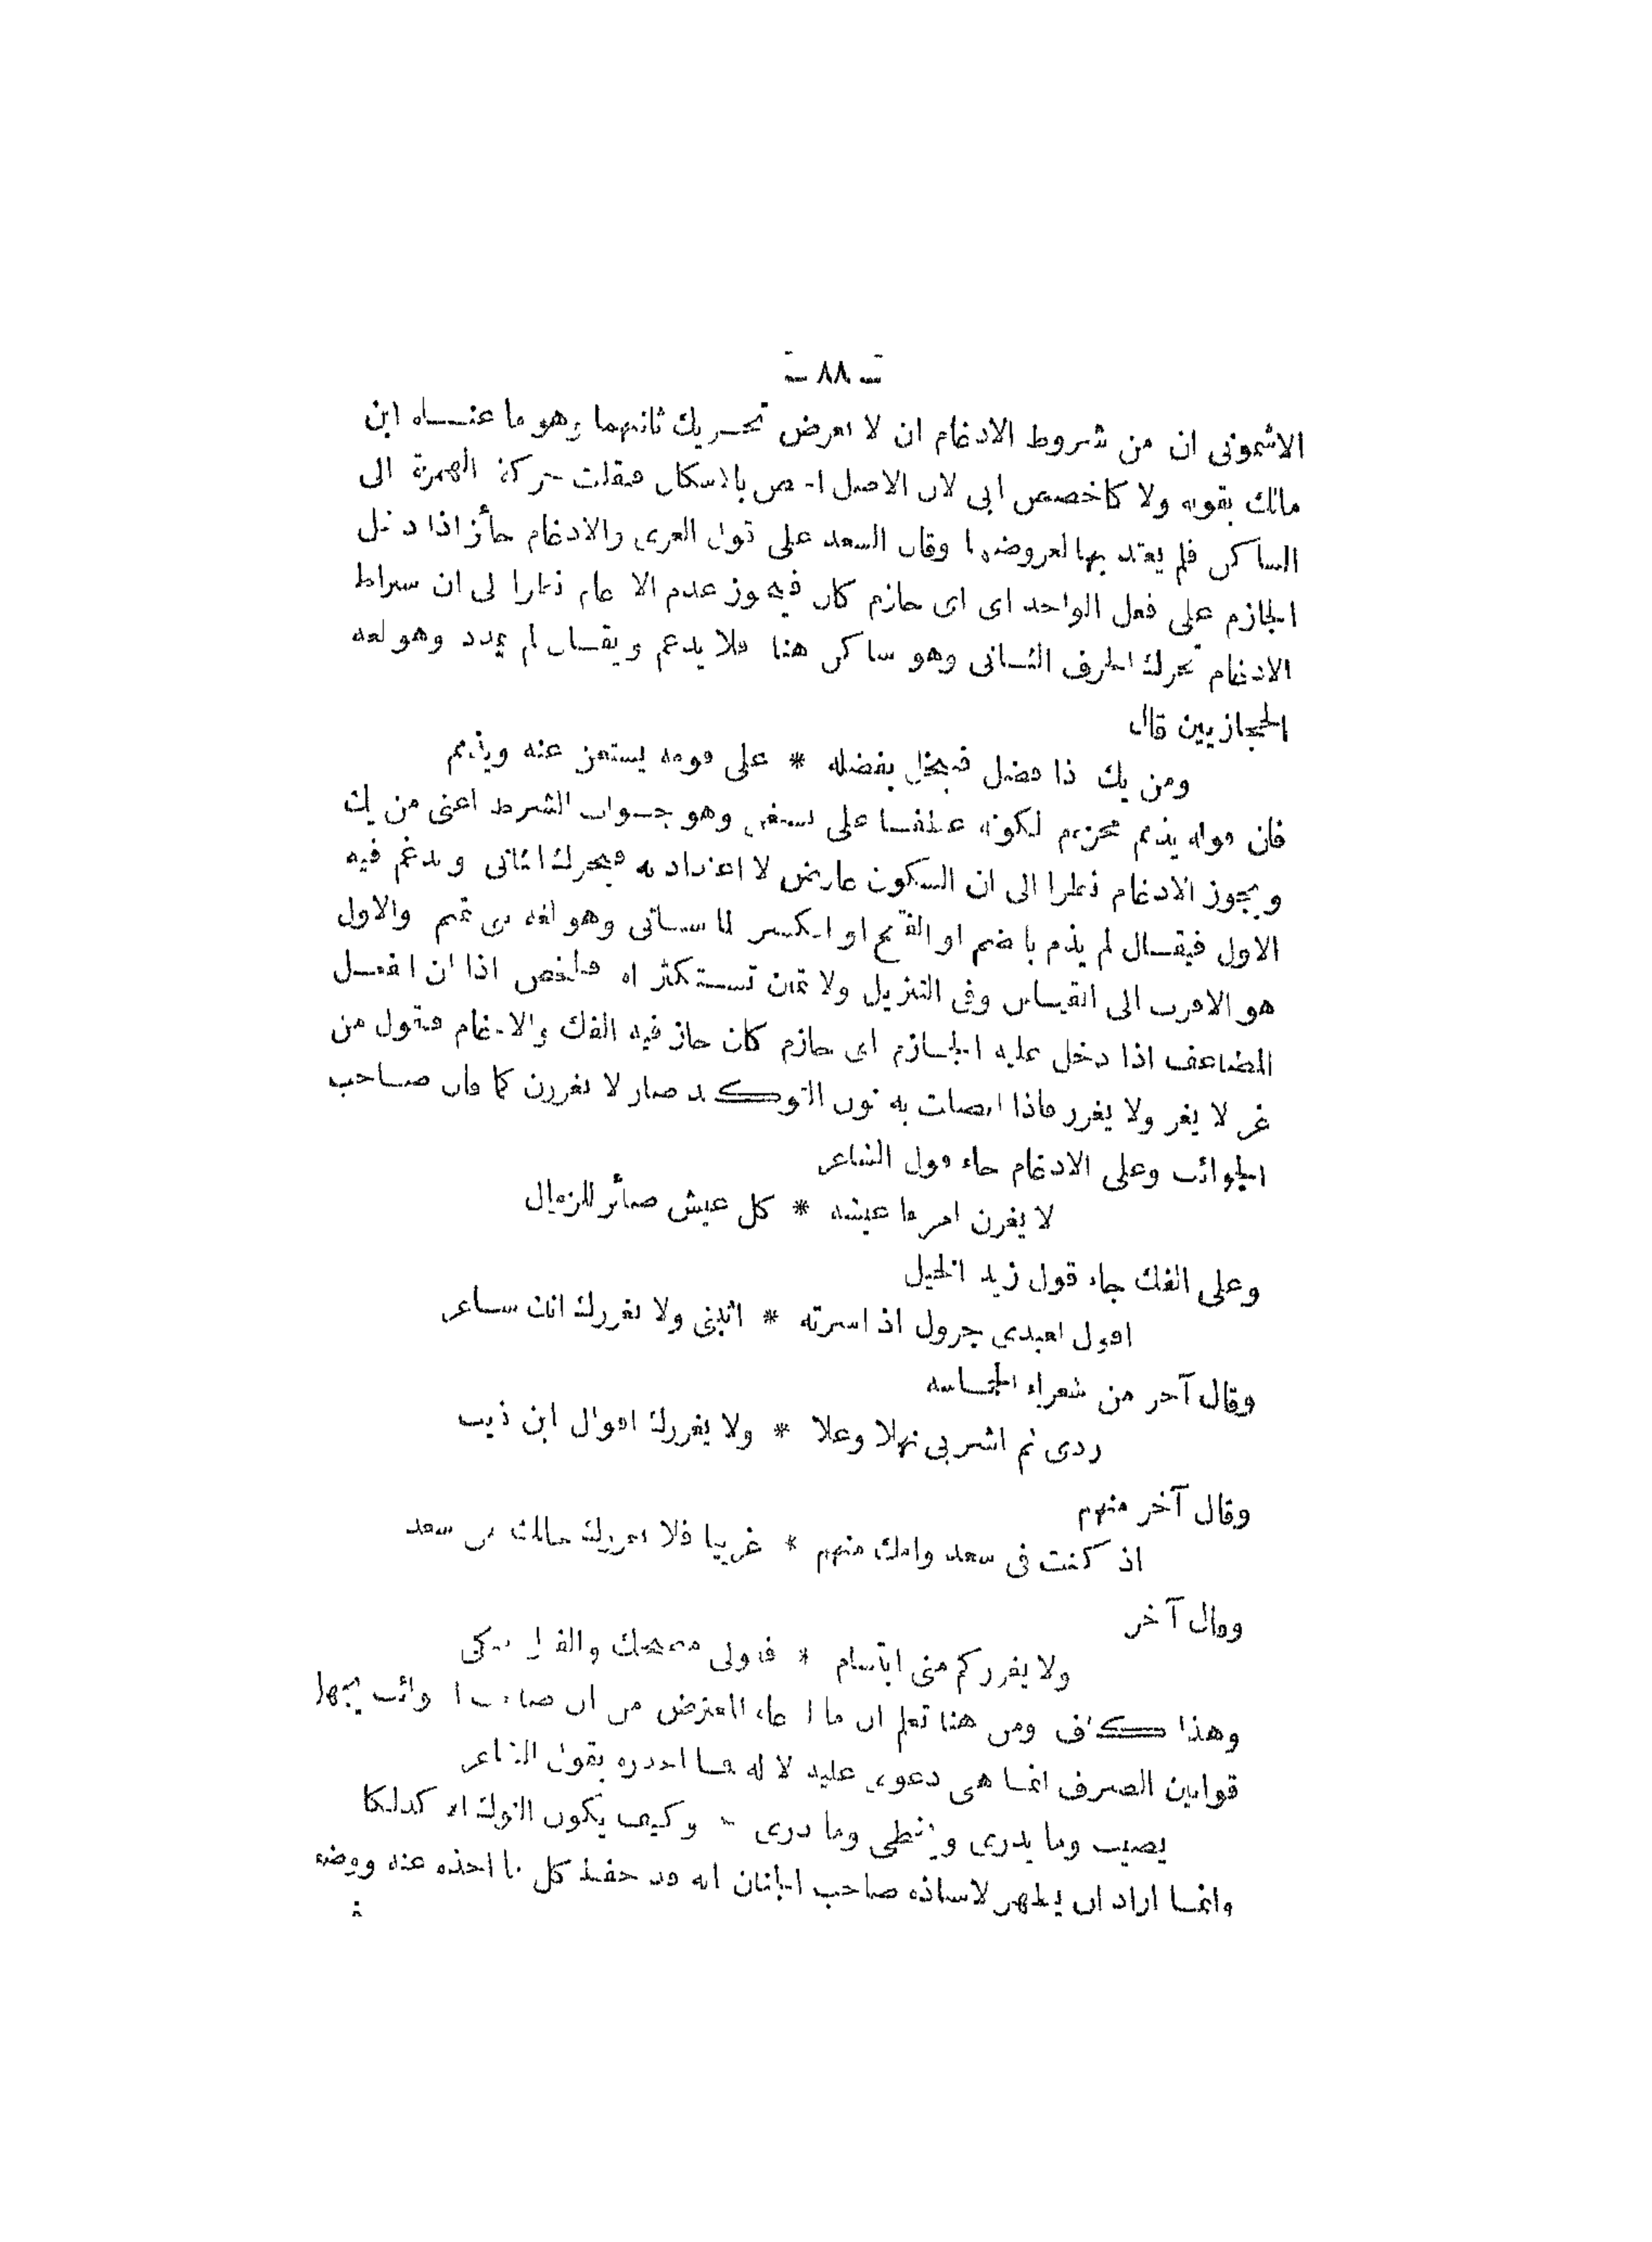 ٨٨
الاشمونى ان من شروط الادغام ان لا يعرض تحريك ثانيهما وهو ما عناه ابن
مالك بقوله ولا كاخصص ابى لان الاصل اخصص بالاسكان فنقلت حركة الهمزة الى
الساكن فلم يعتد بها لعروضها وقال السعد على قول العزى والادغام جائز اذا دخل
الجازم على فعل الواحد اى اى جازم كان فيجوز عدم الادغام نظرا الى ان شرط
الادغام تحرك الحرف الثانى وهو ساكن هنا فلا يدغم ويقال لم يمدد وهو لغة
الحجازيين قال
ومن يك ذا فضل فيبخل بفضله * على قومه يستغن عنه ويذمم
فان قوله يذمم مجزوم لكونه عطفا على يستغن وهو جواب الشرط اعنى من يك
ويجوز الادغام نظرا الى ان السكون عارض لا اعتداد به فيحرك الثانى ويدغم فيه
الاول فيقال لم يذم بالضم او الفتح او الكسر لما سيأتى وهو لغة بنى تميم والاول
هو الاقرب الى القياس وفى التنزيل ولا تمنن تستكثر اه فلخص اذا ان الفعل
المضاعف اذا دخل عليه الجازم اى جازم كان جاز فيه الفك والادغام فتقول من
غر لا يغر ولا يغرر فاذا اتصلت به نون التوكيد صار لا يغررن كما قال صاحب
الجوائب وعلى الادغام جاء قول الشاعر
لا يغرن امرءا عيشه * كل عيش صائر للزوال
وعلى الفك جاء قول زيد الخيل
اقول لعبدى جرول اذ اسرته * اثبنى ولا يغررك انك شاعر
وقال آخر من شعراء الحماسه
ردى ثم اشربى نهلا وعلا * ولا يغررك اقوال ابن ذيب
وقال آخر منهم
اذ كنت فى سعد وامك منهم * غريبا فلا يغررك خالك من سعد
وقال آخر
ولا يغرركم منى ابتسام * فقولى مضحك والفعل مبكى
وهذا كاف ومن هنا تعلم ان ما ادعاه المعترض من ان صاحب الجوائب يجهل
قوانين الصرف انما هى دعوى عليه لا له فما اجدره بقول الشاعر
يصيب وما يدرى ويخطى وما درى * وكيف يكون النوك الا كذلكا
وانما اراد ان يظهر لاستاذه صاحب الجنان انه قد حفظ كل ما اخذه عنه ووضعه